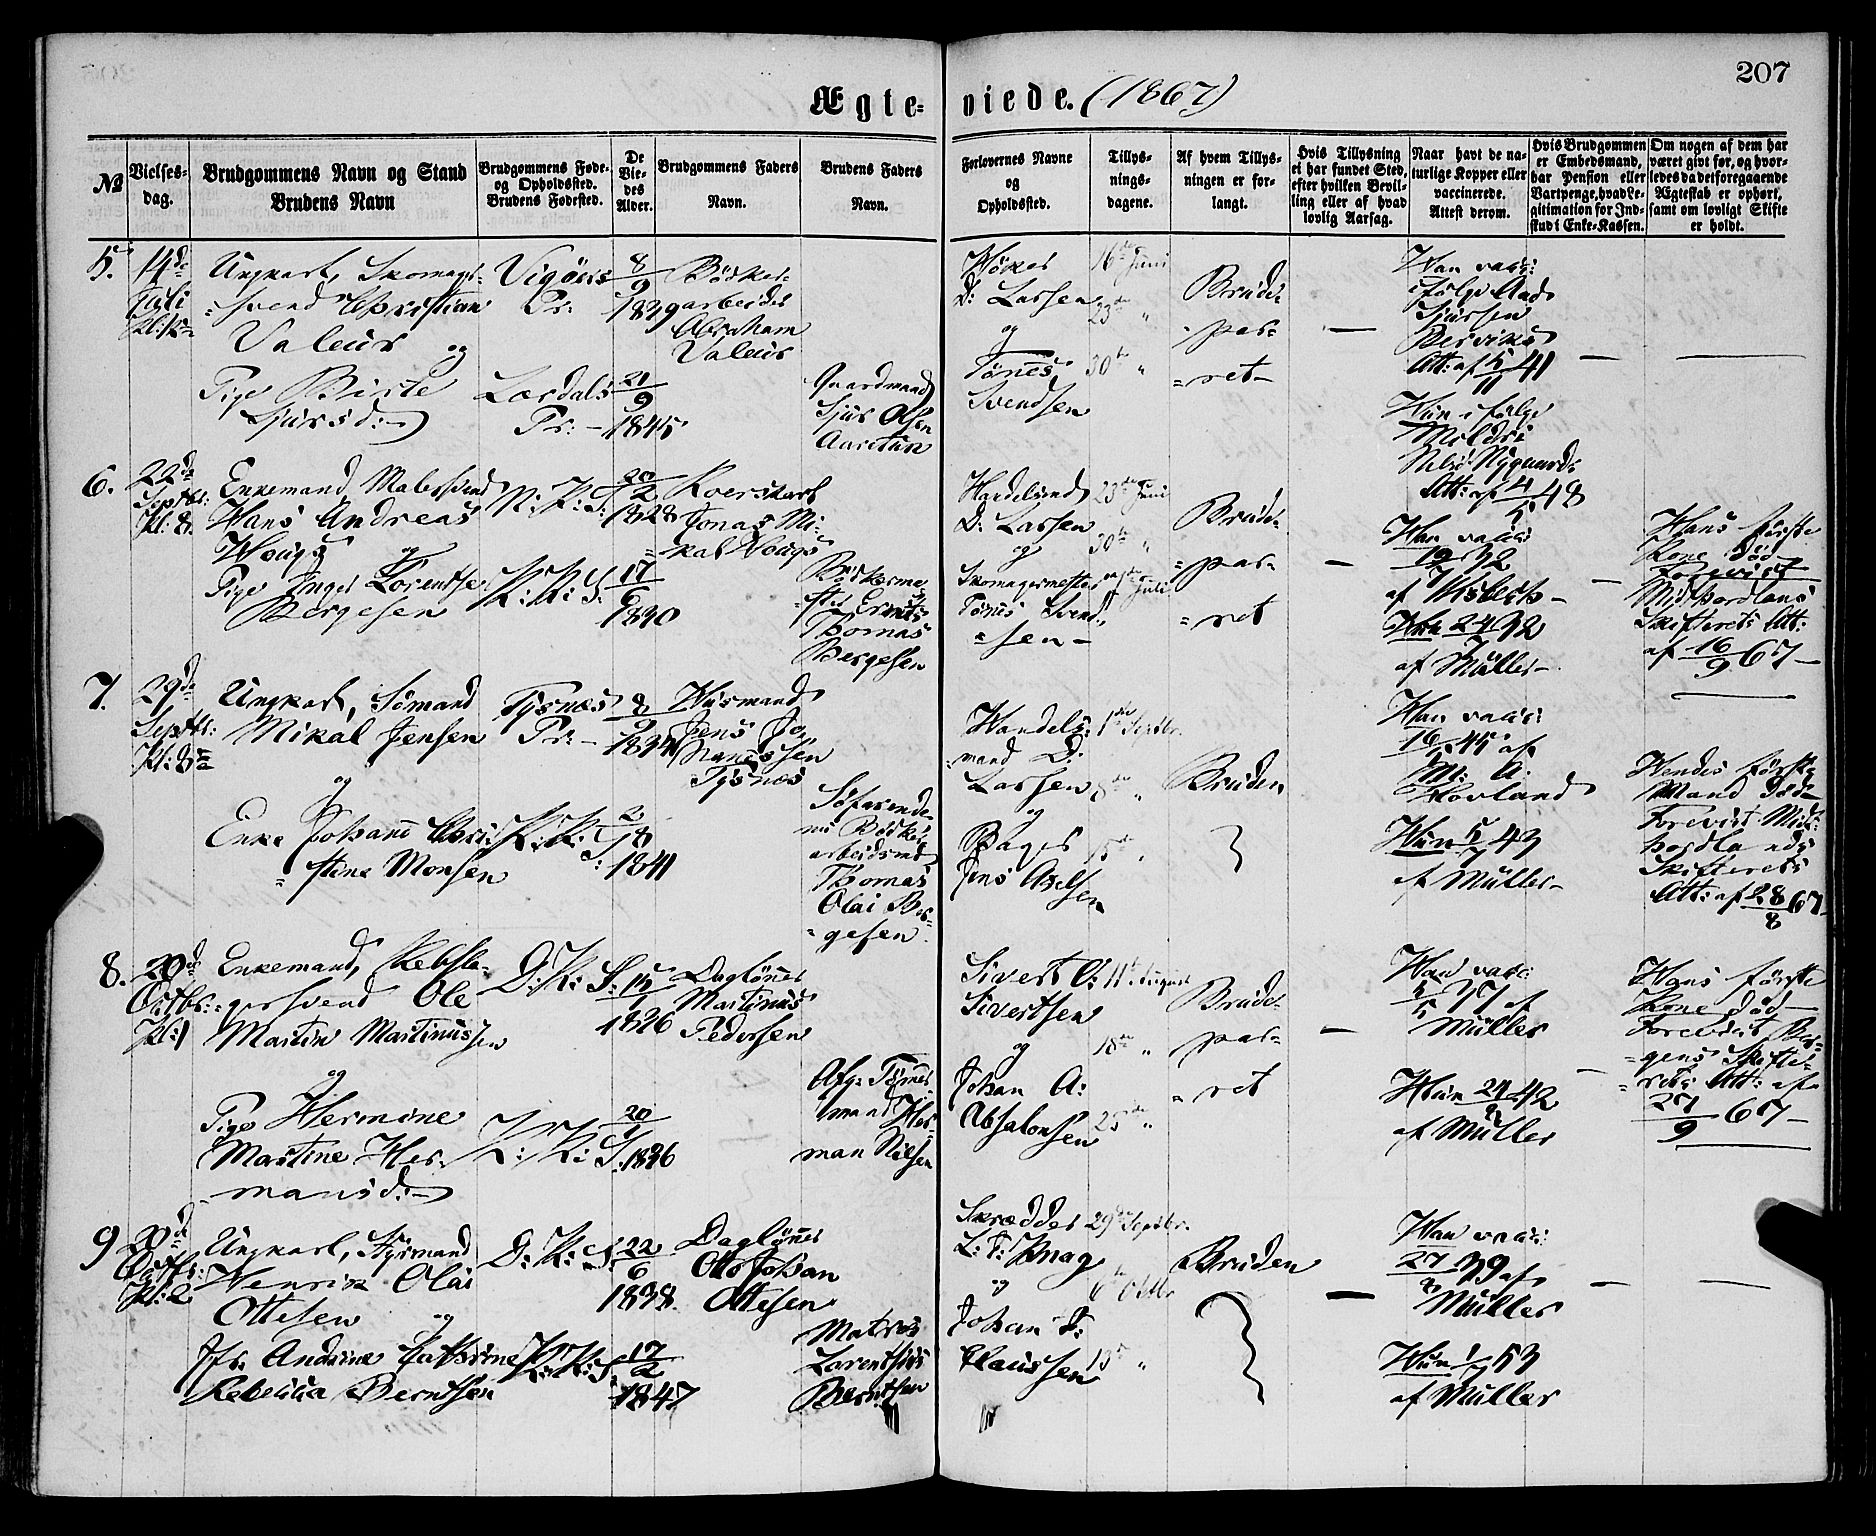 207
Ægte-viede. (1867)
№
Vielses-
dag.
Brudgommens Navn og Stand
Brudens Navn
Brudgommens Føde-
og Opholdssted.
Brudens Fødested.
De
Vie-
des
Alder.
Brudgommens Faders
Navn.
Brudens Faders
Navn.
Forlovernes Navne
og
Opholdssted.
Tillys-
nings-
dagene.
Af hvem Tillys-
ningen er for-
langt.
Hvis Tillysning
ei har fundet Sted,
efter hvilken Bevil-
ling eller af hvad
lovlig Aarsag.
Naar havt de na-
turlige Kopper eller
vaccinerede.
Attest derom.
Hvis Brudgommen
er Embedsmand,
har Pension eller
Vartpenge, hvad Le-
gitimation for Ind-
skud i Enke-Kassen.
Om nogen af dem har
været gift før, og hvor-
ledes da det foregaaende
Ægteskab er ophørt,
samt om lovligt Skifte
er holdt.
5.
14de
Juli
Ungkarl, Skomager-
svend Christian
Valeur
og
Pige Birte
Sjursd:
Vigörs
Pr:
Lærdals
Pr: -
8/9
1839
21/9
1845
Bödker-
arbeider
Abraham
Valeur
Gaardmand
Sjur Olsen
D: Larsen
og
Tönes
Svendsen
16de Juni
23de "
30te "
Brude-
par-
ret
Han vacc:
ifølge And
Sjursen
Att: af 5/11 41
Hun ifølge
Nygaards
Att: af 48
6.
22de
Septbr:
Kl: 8.
Enkemand, Malersvend
Hans Andreas
og
Pige Inger Lorentse
Bergesen
N: K: S:
K: K: S:
20/2
1828
17/6
1830
Jonas Mi-
kal
Bödkerme-
ster
Thomas
Bergesen
Handelsmd
D: Larsen
og
Skomagermester
Tönes Svend-
sen
23de Juni
30te "
7de Juli
Brude-
par-
ret
Han vacc:
af
Hun
af Müller
Hans første
Kone død
Forevist
Midthordlens
Skifterets Att:
af 16/9 67
7.
29de
Septbr:
Ungkarl, Sömand
Mikal Jensen
og
Enke Johane Chri-
stine Monsen
Tysnæs
Pr: -
K: K: S:
8/9
2/8
1841
Husmand
Jens Jo-
hanessen
Tysnæs
Söfarende
nu Bödker-
arbeidsmd
Thomas
Olai Ber-
gesen
Handels-
mand D:
Larsen
og
Bager
Jens Axelsen
1ste Septbr.
8de "
15de "
Bruden
Han vacc:
af
M: A:
Hovland
Hun 5/7 43
af Müller
Hendes første
Mand død
Forevist Midt-
hordlands
Skifterets
Att: af 28/8 67
8.
20de
Octbr:
Kl: 1
Enkemand, Rebsla-
gersvend Ole
Martin Martinussen
og
Pige Hermine
Martine Her-
mansd:
D: K: S:
K: K: S:
15/1
1826
20/1
1836
Daglönner
Martinus
Pedersen
Afg: Tömmer-
mand Her-
man Nilsen
Sivert O:
Sivertsen
og
Johan A:
Absalonsen
11te August
18de "
25de "
Brude-
par-
ret
Han vacc:
af
Müller
Hun 42
af Müller
Hans første
Kone død
Forevist Ber-
gens Skifte-
rets Att: af
27/9 67
9
20de
Octbr:
Kl: 2
Ungkarl, Styrmand
Henrik Olai
Ottesen
og
Jfr. Andrine Cathrine
Rebecca Berntsen
D: K: S:
K: K: S:
22/6
1838.
17/2
1847
Daglönner
Otto Johan
Ottesen
Matros
Lorentsius
Berntsen
Skrædder
L: T: Knag
og
Johan F:
Claussen
29de Septbr.
6te Octbr
13de "
Bruden
Han vacc:
39 af
Müller
Hun 53
af Müller